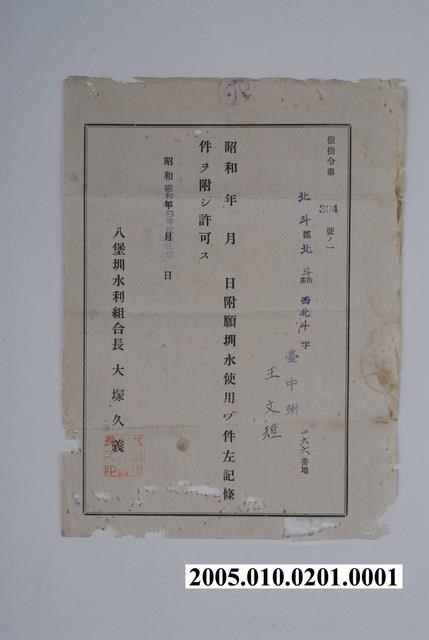 指令第394號ノ一
臺中州
北斗郡北斗街庄西北斗字一六六番地
王文短
昭和 年 月 日附願圳水使用ノ件左記條
件ヲ附シ許可ス
昭和 年 月 日
八堡圳水利組合長 大塚久義
2005.010.0201.0001